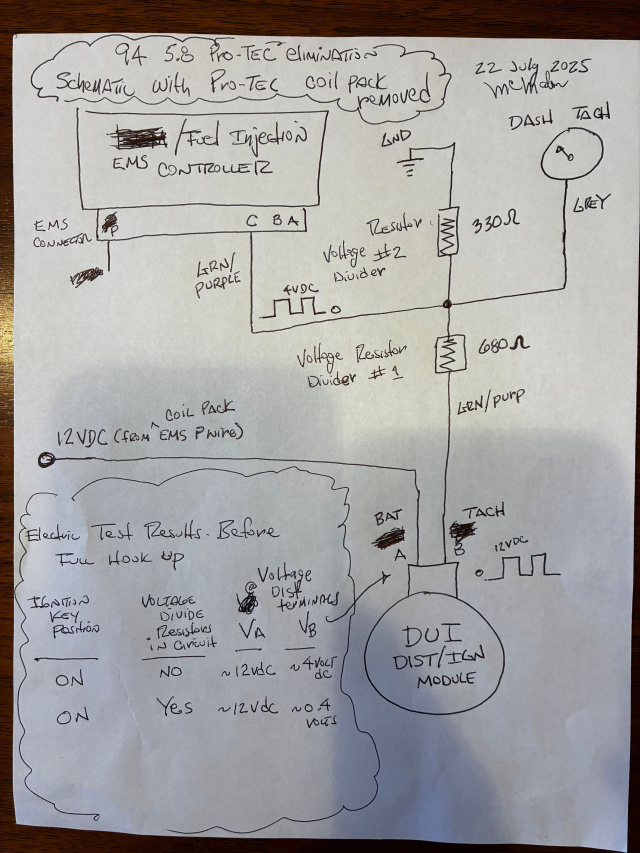 94 5.8 Pro-TEC elimination
Schematic with Pro-TEC coil pack
removed
22 July 2025
DASH TACH
/Fuel Injection
EMS CONTROLLER
GND
EMS
CONNECTOR
P
C B A
GRN/
PURPLE
4VDC
Resistor
Voltage #2
Divider
330Ω
GREY
Voltage Resistor
Divider #1
680Ω
GRN/purp
COIL PACK
12VDC (from ^ EMS P wire)
BAT
A
TACH
B
12VDC
DUI
DIST/IGN
MODULE
Electric Test Results - Before
Full Hook up
IGNITION
KEY
POSITION
VOLTAGE
DIVIDE
Resistors
IN CIRCUIT
@ Voltage
Dist
terminals
VA
VB
ON
NO
~12vdc
~4volt
dc
ON
Yes
~12Vdc
~0.4
volts